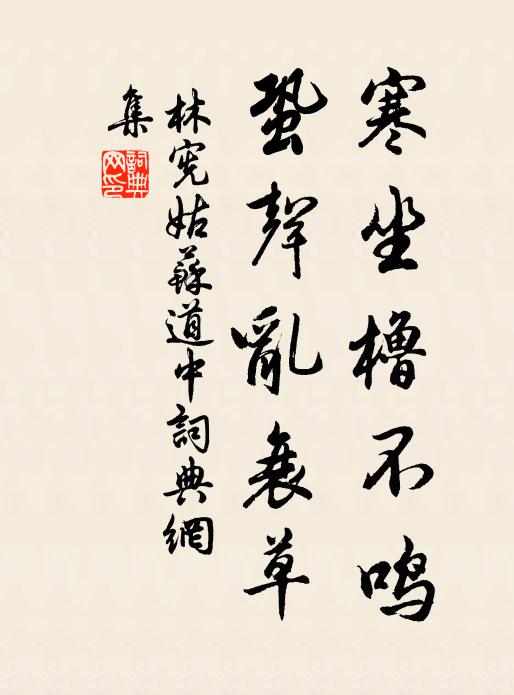 寒坐橹不鸣
蛩聲亂衰草
林宪姑蘇道中詞典網
集
詞典
网印